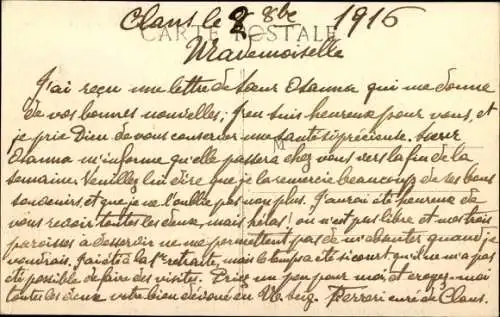 Clans le 2 8bre 1916
CARTE POSTALE
Mademoiselle
J'ai reçu une lettre de Sœur Osanna qui me donne
de vos bonnes nouvelles; j'en suis heureux pour vous, et
je prie Dieu de vous conserver une santé si précieuse. Sœur
Osanna m'informe qu'elle passera chez vous vers la fin de la
semaine. Veuillez lui dire que je la remercie beaucoup de ses bons
souvenirs, et que je ne l'oublie pas non plus. J'aurai été heureux de
vous revoir toutes les deux, mais hélas! on n'est pas libre et mes trois
paroisses à desservir ne me permettent pas de m'absenter quand je
voudrais. J'ai été à la 1re retraite, mais le temps a été si court qu'il ne m'a pas
été possible de faire des visites. Priez un peu pour moi, et croyez-moi
toutes les deux votre bien dévoué en Ferrari curé de Clans.